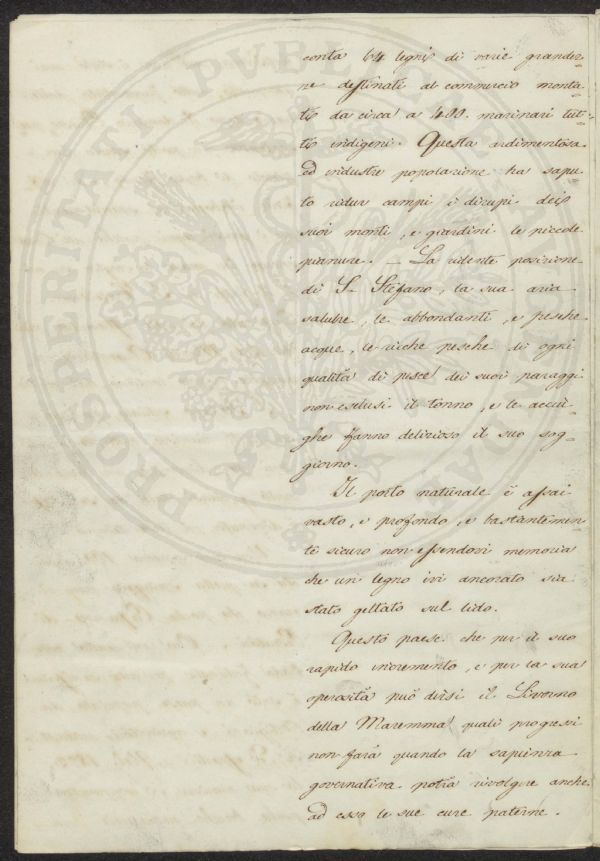 conta 64 legni di varie grandez=
ze destinati al commercio monta=
ti da circa a 400. marinari tut=
ti indigeni. Questa ardimentosa
ed industre popolazione ha sapu=
to ridur campi i dirupi dei
suoi monti, e giardini le piccole
pianure. — La ridente posizione
di S. Stefano, la sua aria
salubre, le abbondanti, e fresche
acque, le ricche pesche di ogni
qualità di pesce dei suoi paraggi
non esclusi il tonno, e le acciu=
ghe fanno delizioso il suo sog=
giorno.
Il porto naturale è assai
vasto, e profondo, e bastantemen=
te sicuro non essendovi memoria
che un legno ivi ancorato sia
stato gettato sul lido.
Questo paese che per il suo
rapido incremento, e per la sua
operosità può dirsi il Livorno
della Maremma quali progressi
non farà quando la sapienza
governativa potrà rivolgere anche
ad esso le sue cure paterne.
PROSPERITATI PVBLICAE